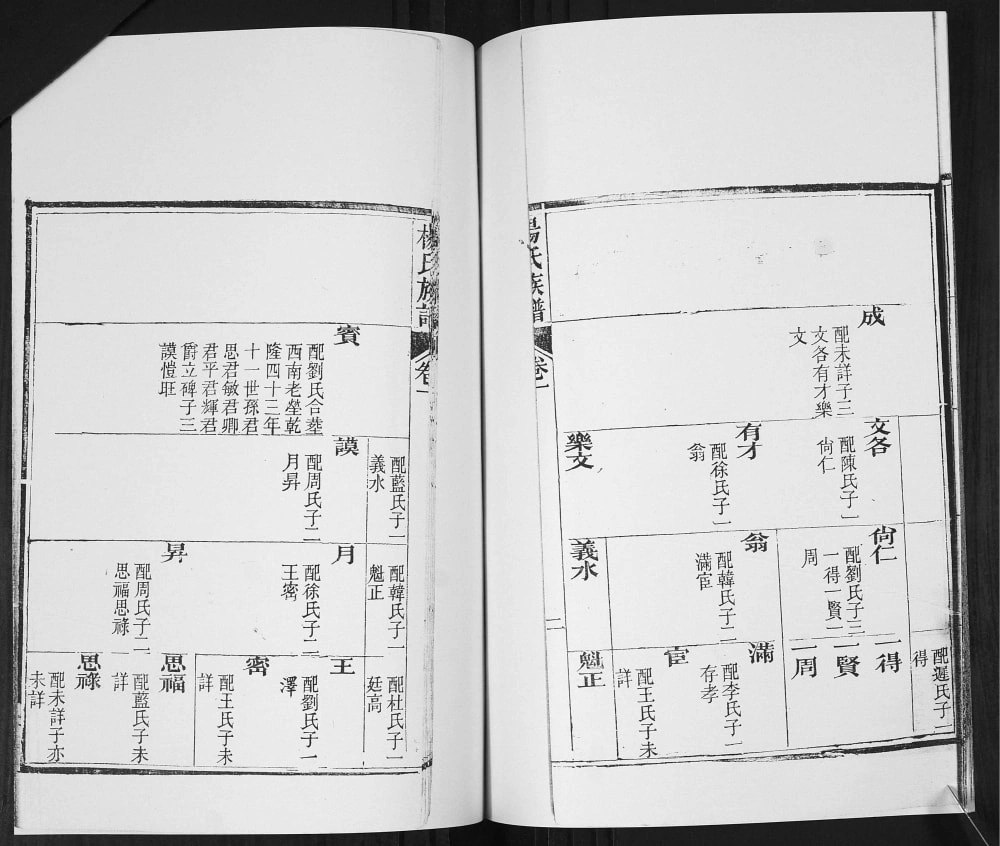 成
配未詳子三
文各有才樂
文
文各
配陳氏子一
尙仁
有才
配徐氏子一
翁
樂文
尙仁
配劉氏子三
一得一賢一
周
翁
配韓氏子二
滿宦
義水
配遲氏子一
得
一得
一賢
一周
滿
配李氏子一
存孝
宦
配王氏子未
詳
魁正
楊氏族譜
卷一
二
楊氏族譜
卷一
賓
配劉氏合塟
西南老塋乾
隆四十三年
十一世孫君
思君敏君卿
君平君輝君
爵立碑子三
謨愷旺
配藍氏子一
義水
謨
配周氏子二
月昇
配韓氏子一
魁正
月
配徐氏子二
王密
昇
配周氏子二
思福思祿
配杜氏子一
廷高
王
配劉氏子一
澤
密
配王氏子未
詳
思福
配藍氏子未
詳
思祿
配未詳子亦
未詳